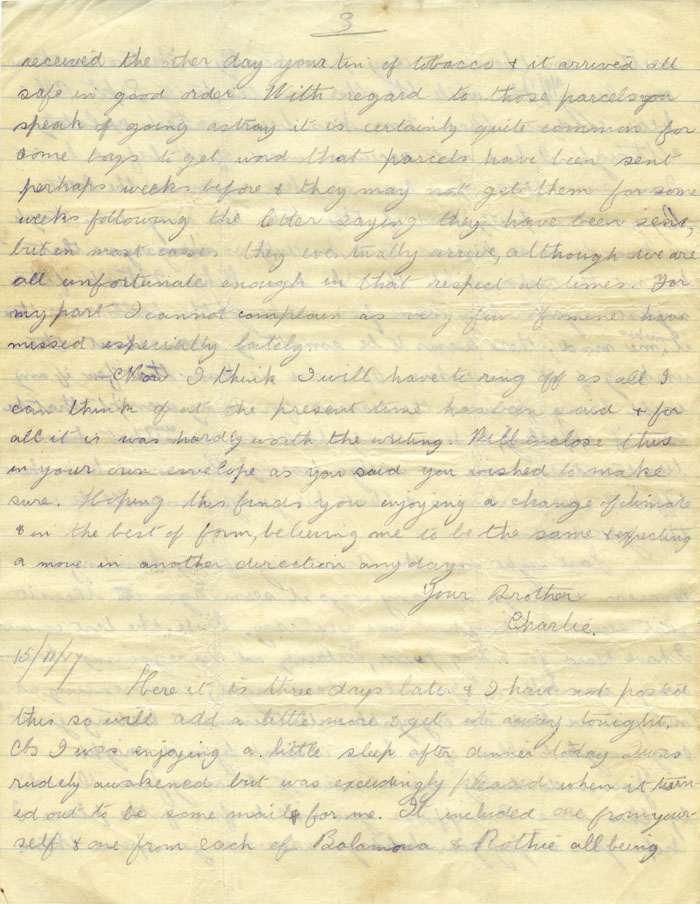 3
received the other day your tin of tobacco & it arrived all
safe in good order. With regard to those parcels you
speak of going astray it is certainly quite common for
some boys to get word that parcels have been sent
perhaps weeks before & they may not get them for some
weeks following the letter saying they have been sent,
but in most cases they eventually arrive, although we are
all unfortunate enough in that respect at times. For
my part I cannot complain as very few of mine have
missed especially lately.
Now I think I will have to ring off as all I
can think of at the present time has been said & for
all it is was hardly worth the writing. Will enclose this
in your own envelope as you said you wished to make
sure. Hoping this finds you enjoying a change of climate
& in the best of form, believing me to be the same & expecting
a move in another direction any day.
Your Brother
Charlie.
15/11/17
Here it is three days later & I have not posted
this so will add a little more & get it away tonight.
As I was enjoying a little sleep after dinner today I was
rudely awakened but was exceedingly pleased when it turn-
ed out to be some mail for me. It included one from your-
self & one from each of Balamona & Rothie all being